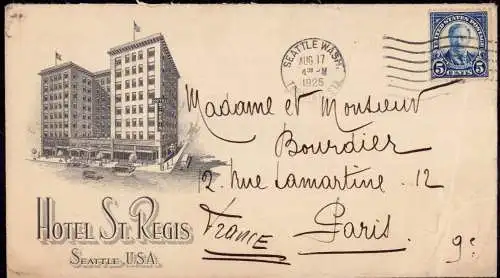 SEATTLE WASH.
AUG 17
4 PM
1925
UNITED STATES POSTAGE
5 CENTS 5
Madame et Monsieur
Bourdier
2. rue Lamartine. 12
France Paris.
9e
HOTEL ST. REGIS
SEATTLE, U.S.A.